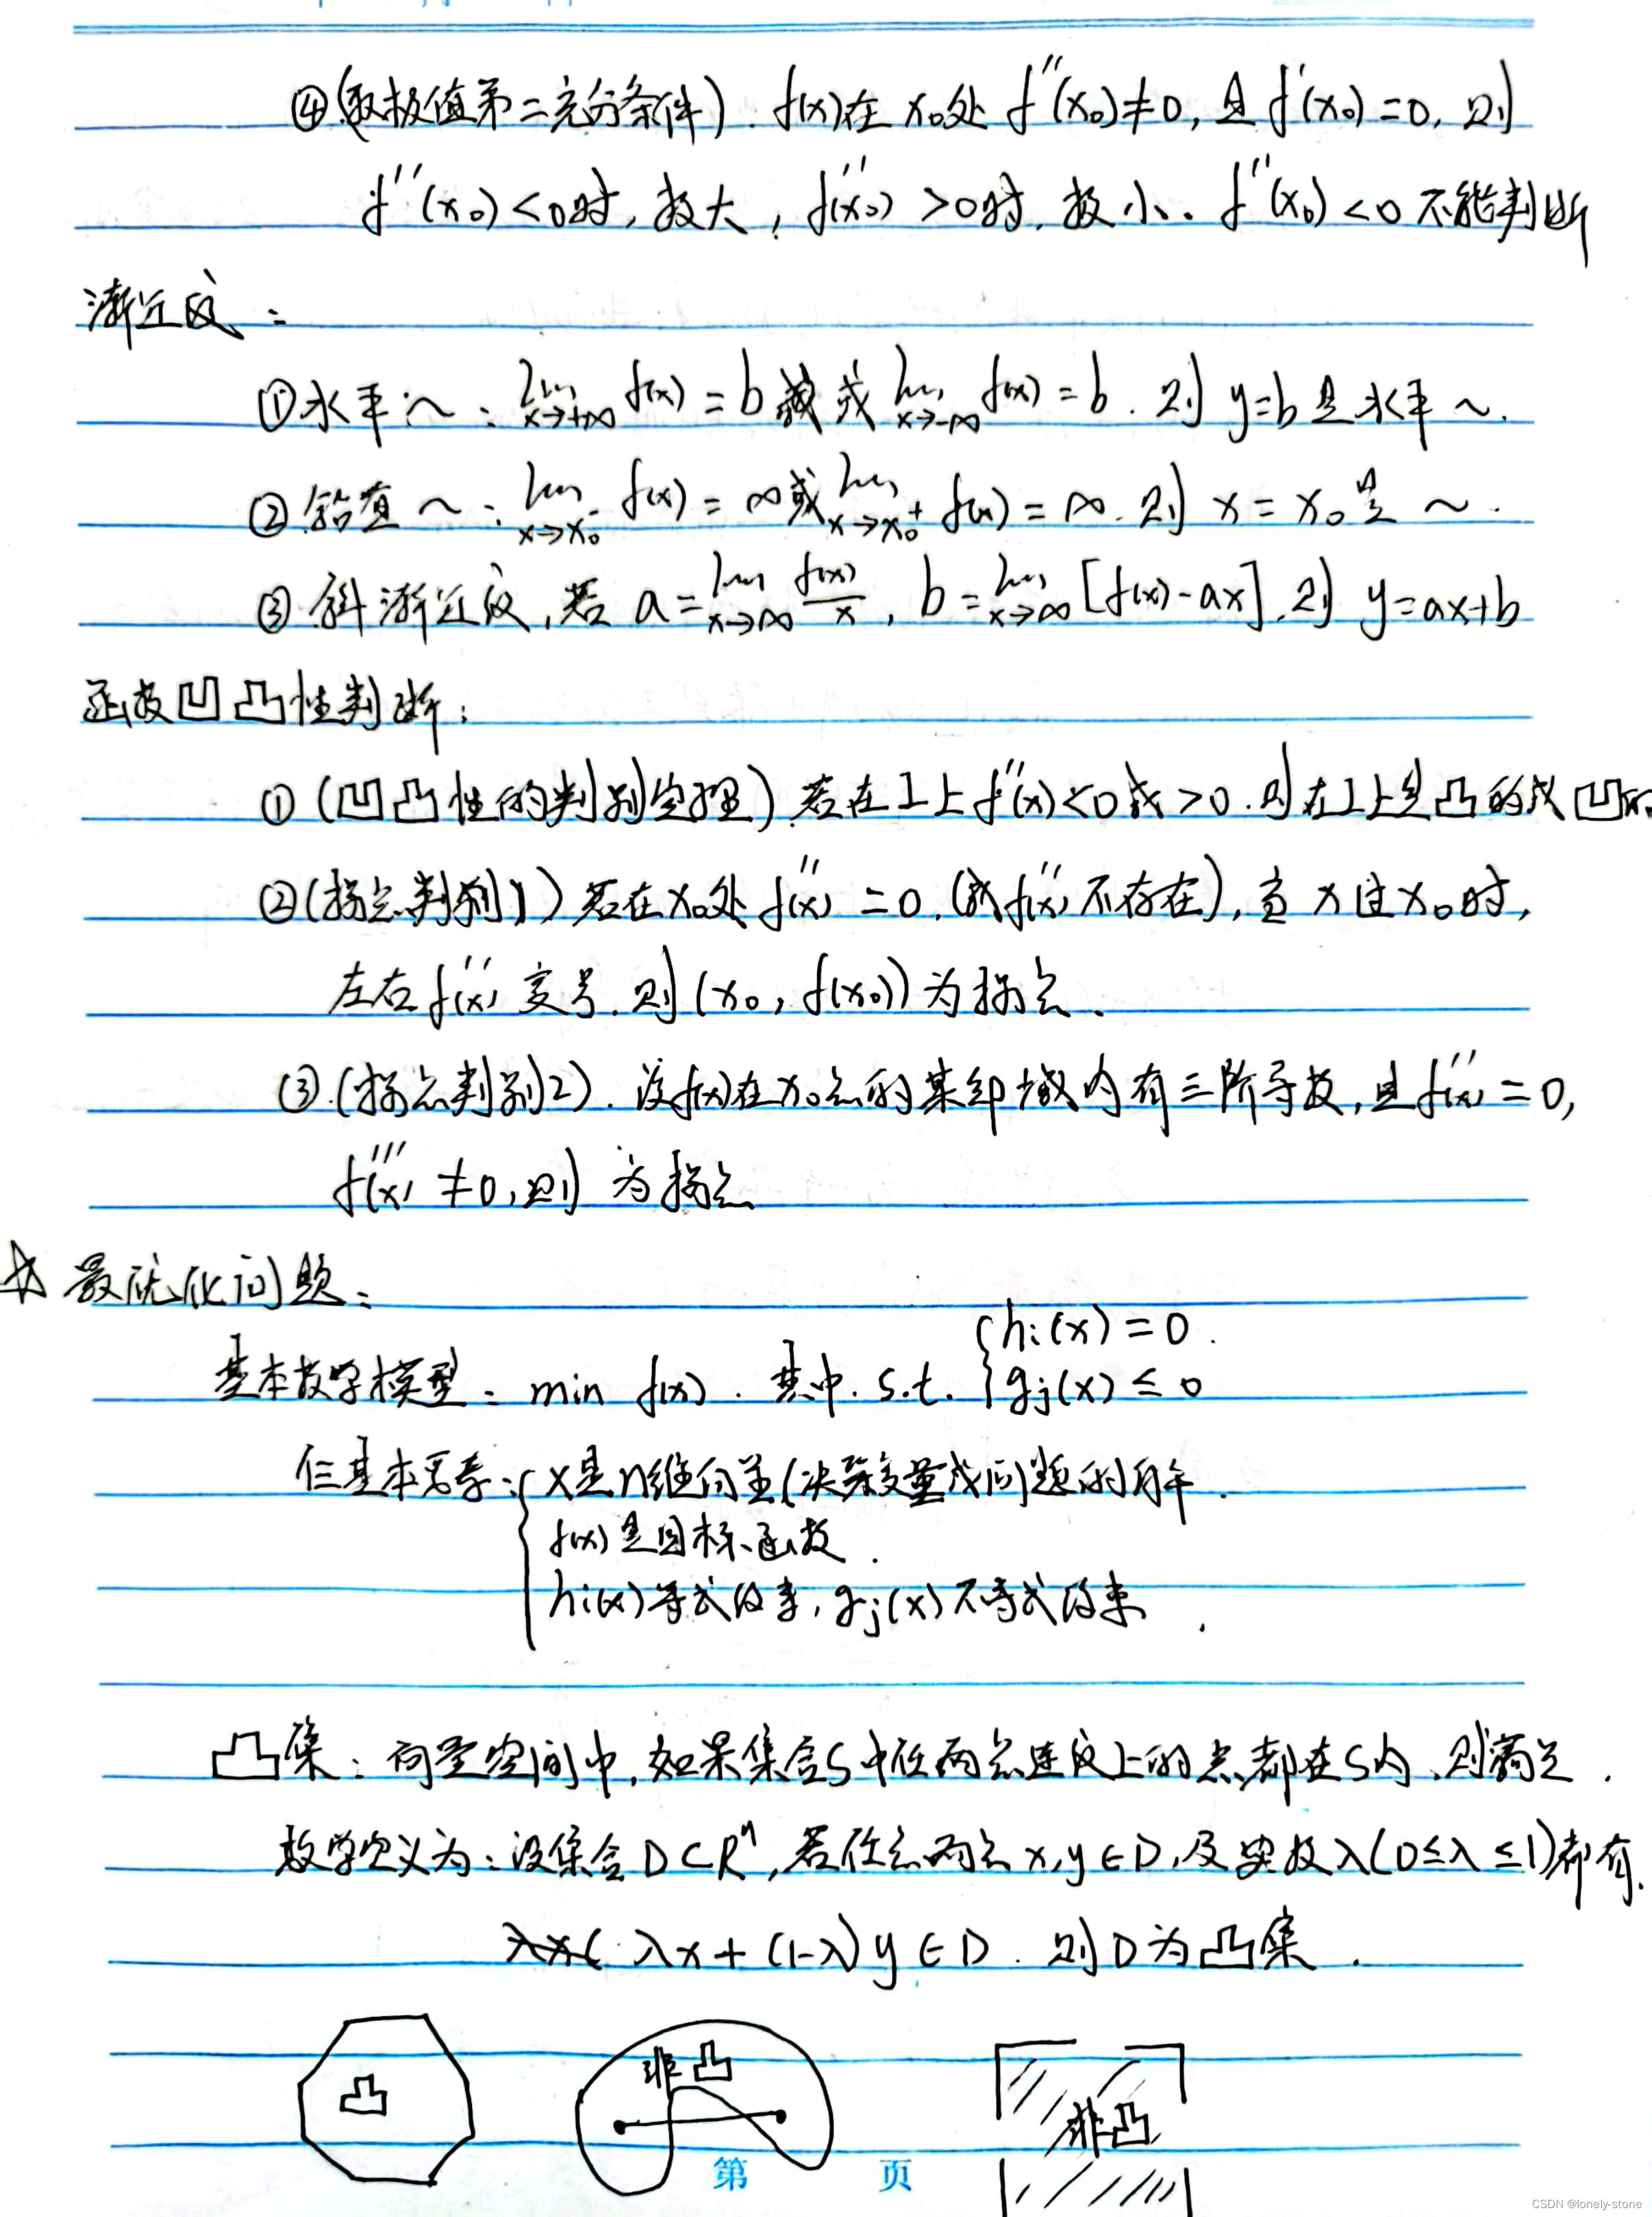 ④(取极值第二充分条件). f(x)在x₀处f''(x₀)≠0,且f'(x₀)=0,则
f''(x₀)<0时,极大,f''(x₀)>0时,极小. f''(x₀)<0不能判断
渐近线:
①水平~: lim x→+∞ f(x)=b 或 lim x→-∞ f(x)=b. 则y=b是水平~.
②铅直~: lim x→x₀⁻ f(x)=∞或lim x→x₀⁺ f(x)=∞. 则x=x₀是~.
③斜渐近线,若a=lim x→∞ f(x)/x, b=lim x→∞ [f(x)-ax],则y=ax+b
函数凹凸性判断:
①(凹凸性的判别定理)若在I上f''(x)<0或>0.则在I上是凸的或凹的
②(拐点判别1)若在x₀处f''(x)=0.(或f''(x)不存在),当x过x₀时,
左右f''(x)变号.则(x₀,f(x₀))为拐点.
③(拐点判别2).设f(x)在x₀点的某邻域内有三阶导数,且f''(x)=0,
f'''(x)≠0,则为拐点
☆最优化问题:
基本数学模型: min f(x). 其中. s.t. {hᵢ(x)=0.
gⱼ(x)≤0
三基本要素:{x是n维向量(决策变量或问题的解.
f(x)是目标函数.
hᵢ(x)等式约束,gⱼ(x)不等式约束.
凸集:向量空间中,如果集合S中任两点连线上的点都在S内,则满足.
数学定义为:设集合D⊂Rⁿ,若任意两点x,y∈D,及实数λ(0≤λ≤1)都有.
λx+(1-λ)y∈D. 则D为凸集.
凸 非凸 非凸
第 页
CSDN @lonely-stone